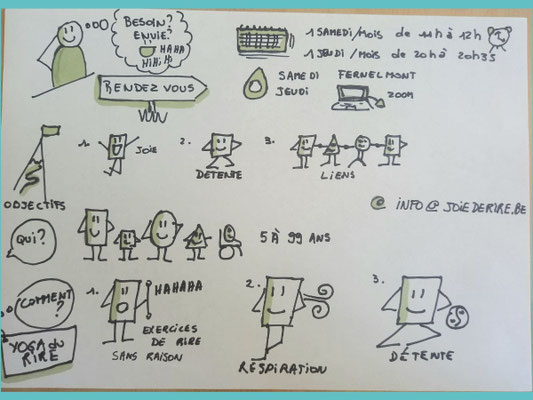 BESOIN?
ENVIE?
HAHA
HiHiHi
RENDEZ VOUS
1 SAMEDI/MOIS de 11h à 12h
1 JEUDI/MOIS de 20h à 20h35
SAMEDI FERNELMONT
JEUDI ZOOM
OBJECTIFS
1. JOIE
2. DÉTENTE
3. LIENS
@ INFO@JOIEDERIRE.BE
QUI?
5 À 99 ANS
COMMENT?
YOGA du
RIRE
1. HAHAHA
EXERCICES
DE RIRE
SANS RAISON
2. RESPIRATION
3. DÉTENTE